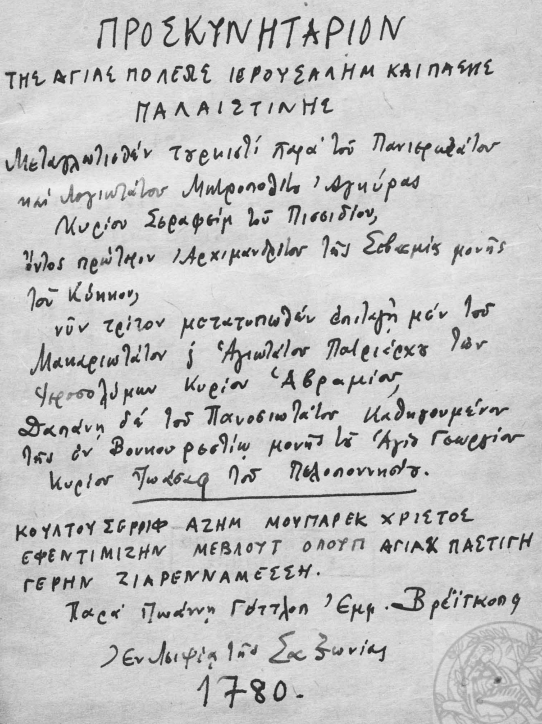 ΠΡΟΣΚΥΝΗΤΑΡΙΟΝ
ΤΗΣ ΑΓΙΑΣ ΠΟΛΕΩΣ ΙΕΡΟΥΣΑΛΗΜ ΚΑΙ ΠΑΣΗΣ
ΠΑΛΑΙΣΤΙΝΗΣ
Μεταγλωτισθέν τυρκιστί παρά τοῦ Πανιερωτάτου
καί Λογιωτάτου Μητροπολίτου Ἀγκύρας
Κυρίου Σεραφείμ τοῦ Πισσιδίου,
ὄντος πρώτερον Ἀρχιμανδρίτου τῆς Σεβασμίας μονῆς
τοῦ Κύκκου,
νῦν τρίτον μετατυπωθέν ἐπιταγῇ μέν τοῦ
Μακαριωτάτου ἁγιωτάτου Πατριάρχου τῶν
Ἱεροσολύμων Κυρίου Ἀβραμίου,
Δαπάνῃ δέ τοῦ Πανοσιωτάτου Καθηγουμένου
τῆς ἐν Βουκουρεστίῳ μονῆς τοῦ Ἁγίου Γεωργίου
Κυρίου Ἰωάσαφ τοῦ Πελοποννησίου.
ΚΟΥΛΤΟΥ ΣΕΡΡΙΦ ΑΖΗΜ ΜΟΥΠΑΡΕΚ ΧΡΙΣΤΟΣ
ΕΦΕΝΤΙΜΙΖΗΝ ΜΕΒΛΟΥΤ ΟΛΟΥΠ ΑΓΙΑΧ ΠΑΣΤΙΓΗ
ΓΕΡΗΝ ΖΙΑΡΕΝΝΑΜΕΣΣΗ.
Παρά Ἰωάννῃ Γόττλοπ Ἐμμ. Βρέϊτκοπφ
Ἐν Λειψίᾳ τῆς Σαξωνίας
1780.